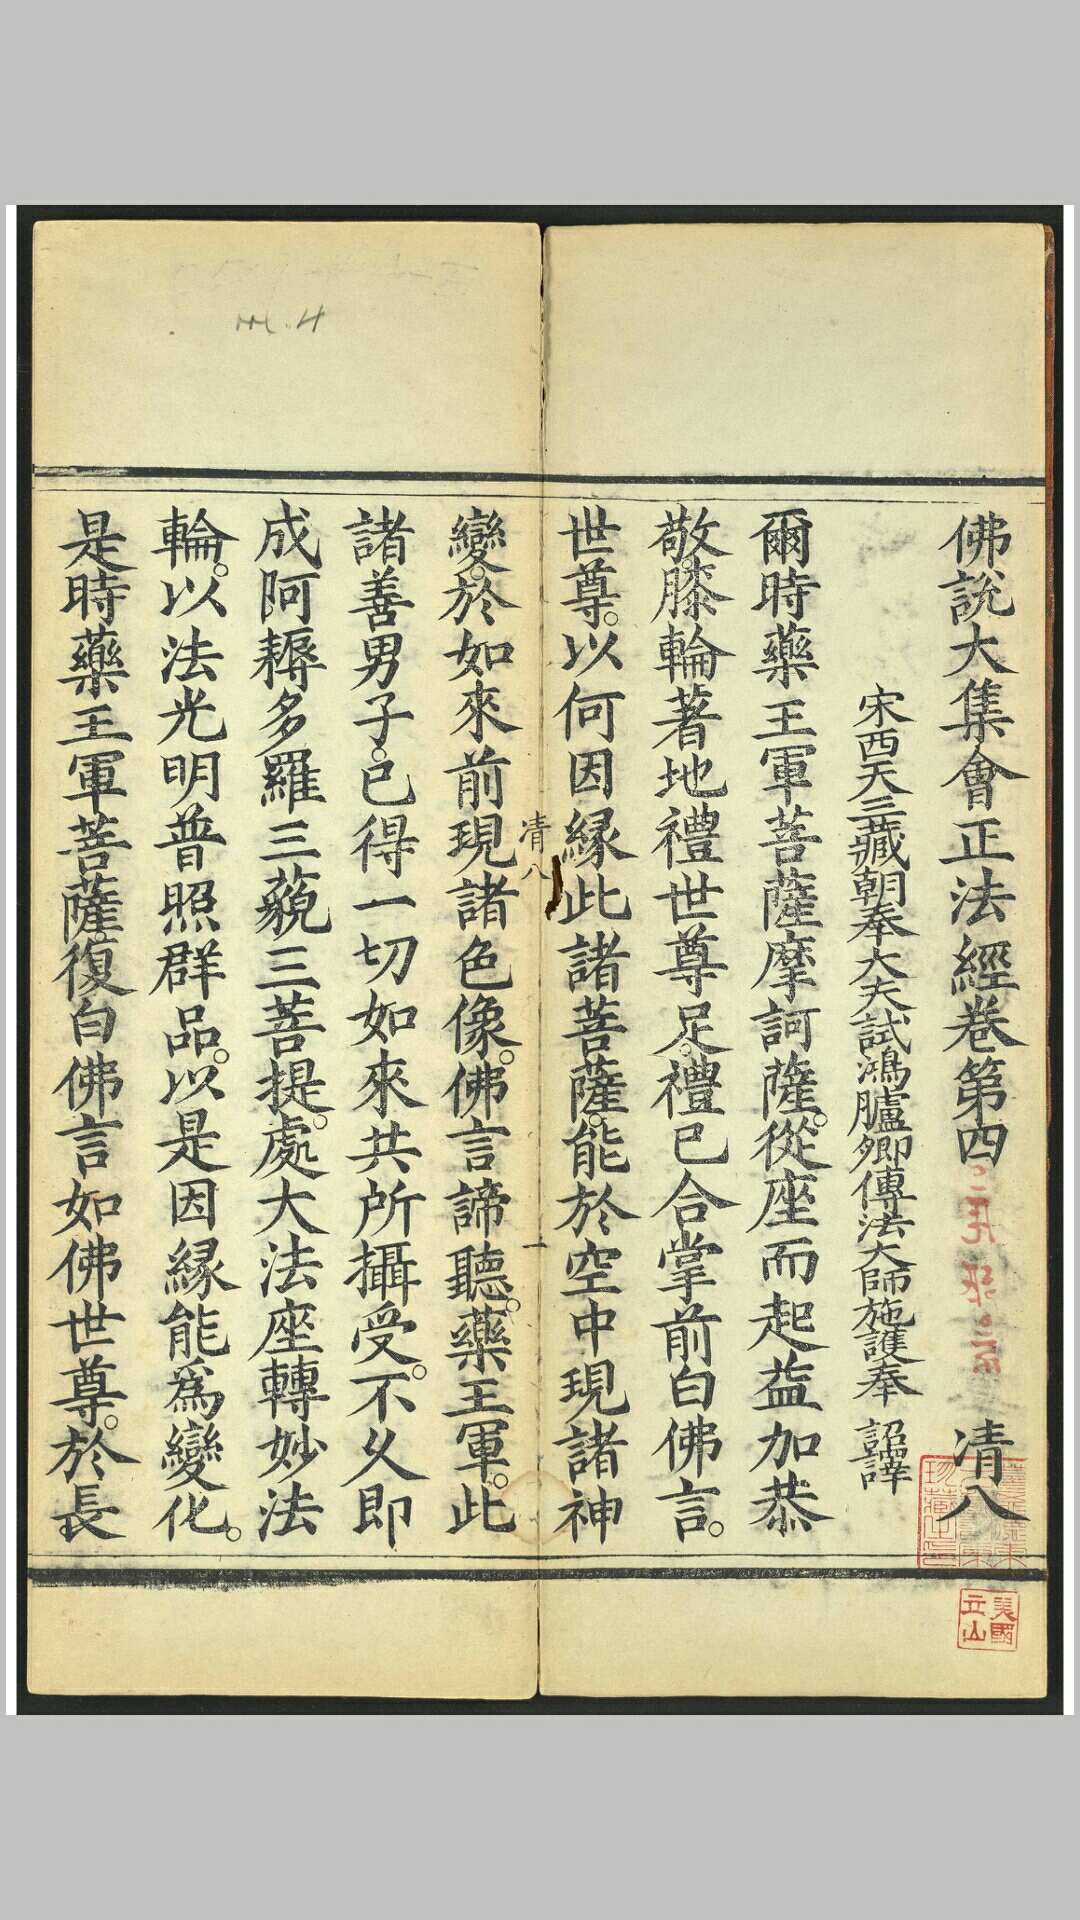 佛說大集會正法經卷第四 清八
宋西天三藏朝奉大夫試鴻臚卿傳法大師施護奉 詔譯
爾時藥王軍菩薩摩訶薩。從座而起益加恭
敬。膝輪著地禮世尊足。禮已合掌前白佛言。
世尊。以何因緣此諸菩薩。能於空中現諸神
清八
一
變。於如來前現諸色像。佛言諦聽。藥王軍。此
諸善男子。已得一切如來共所攝受。不久即
成阿耨多羅三藐三菩提。處大法座轉妙法
輪。以法光明普照群品。以是因緣能為變化。
是時藥王軍菩薩復白佛言如佛世尊。於長
美國
立山